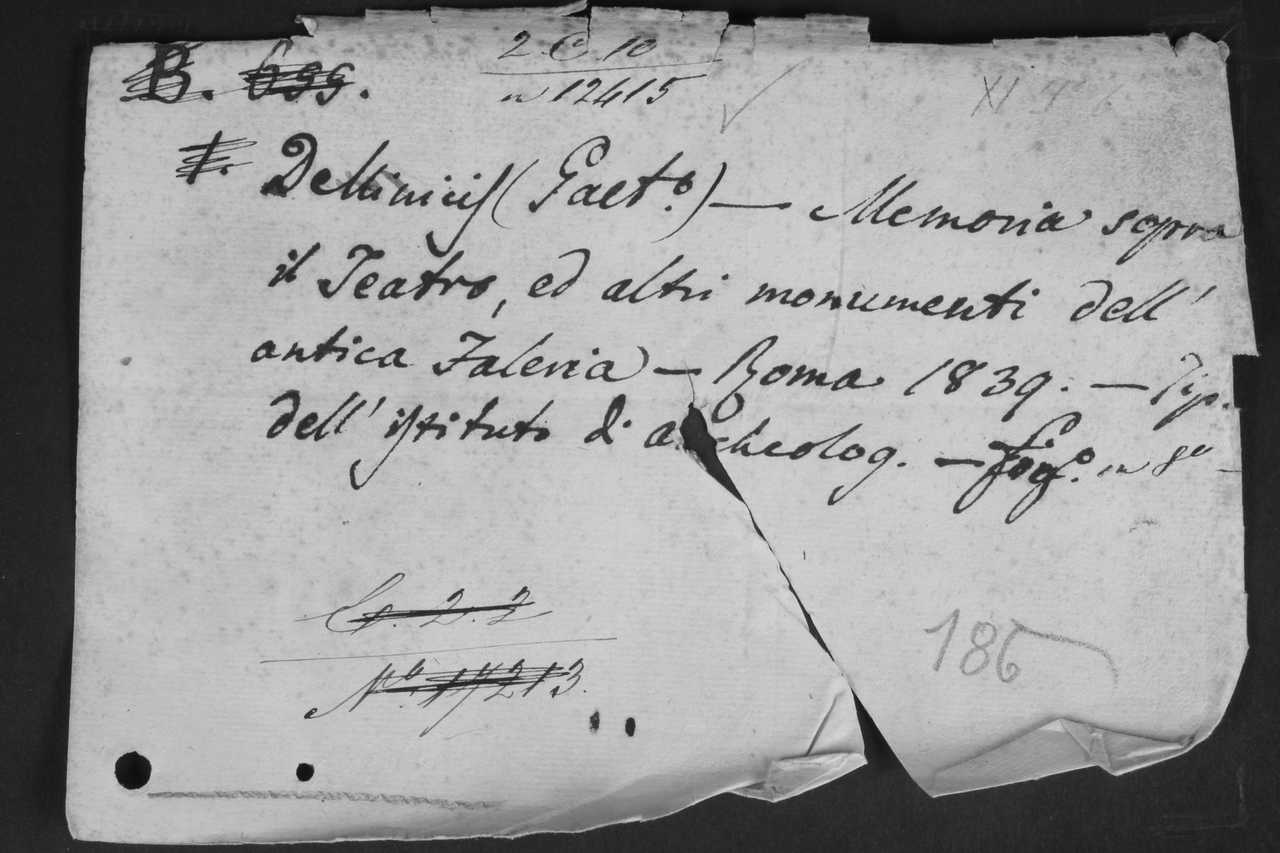 2. C. 10
B. 699.
n 12415
XI
Deminicis (Gaet.º) — Memoria sopra
il Teatro, ed altri monumenti dell'
antica Faleria — Roma 1839. — Tip.
dell' istituto di archeolog. — fig.º in 8º —
Co. 2. 2
Nº. 17213.
186